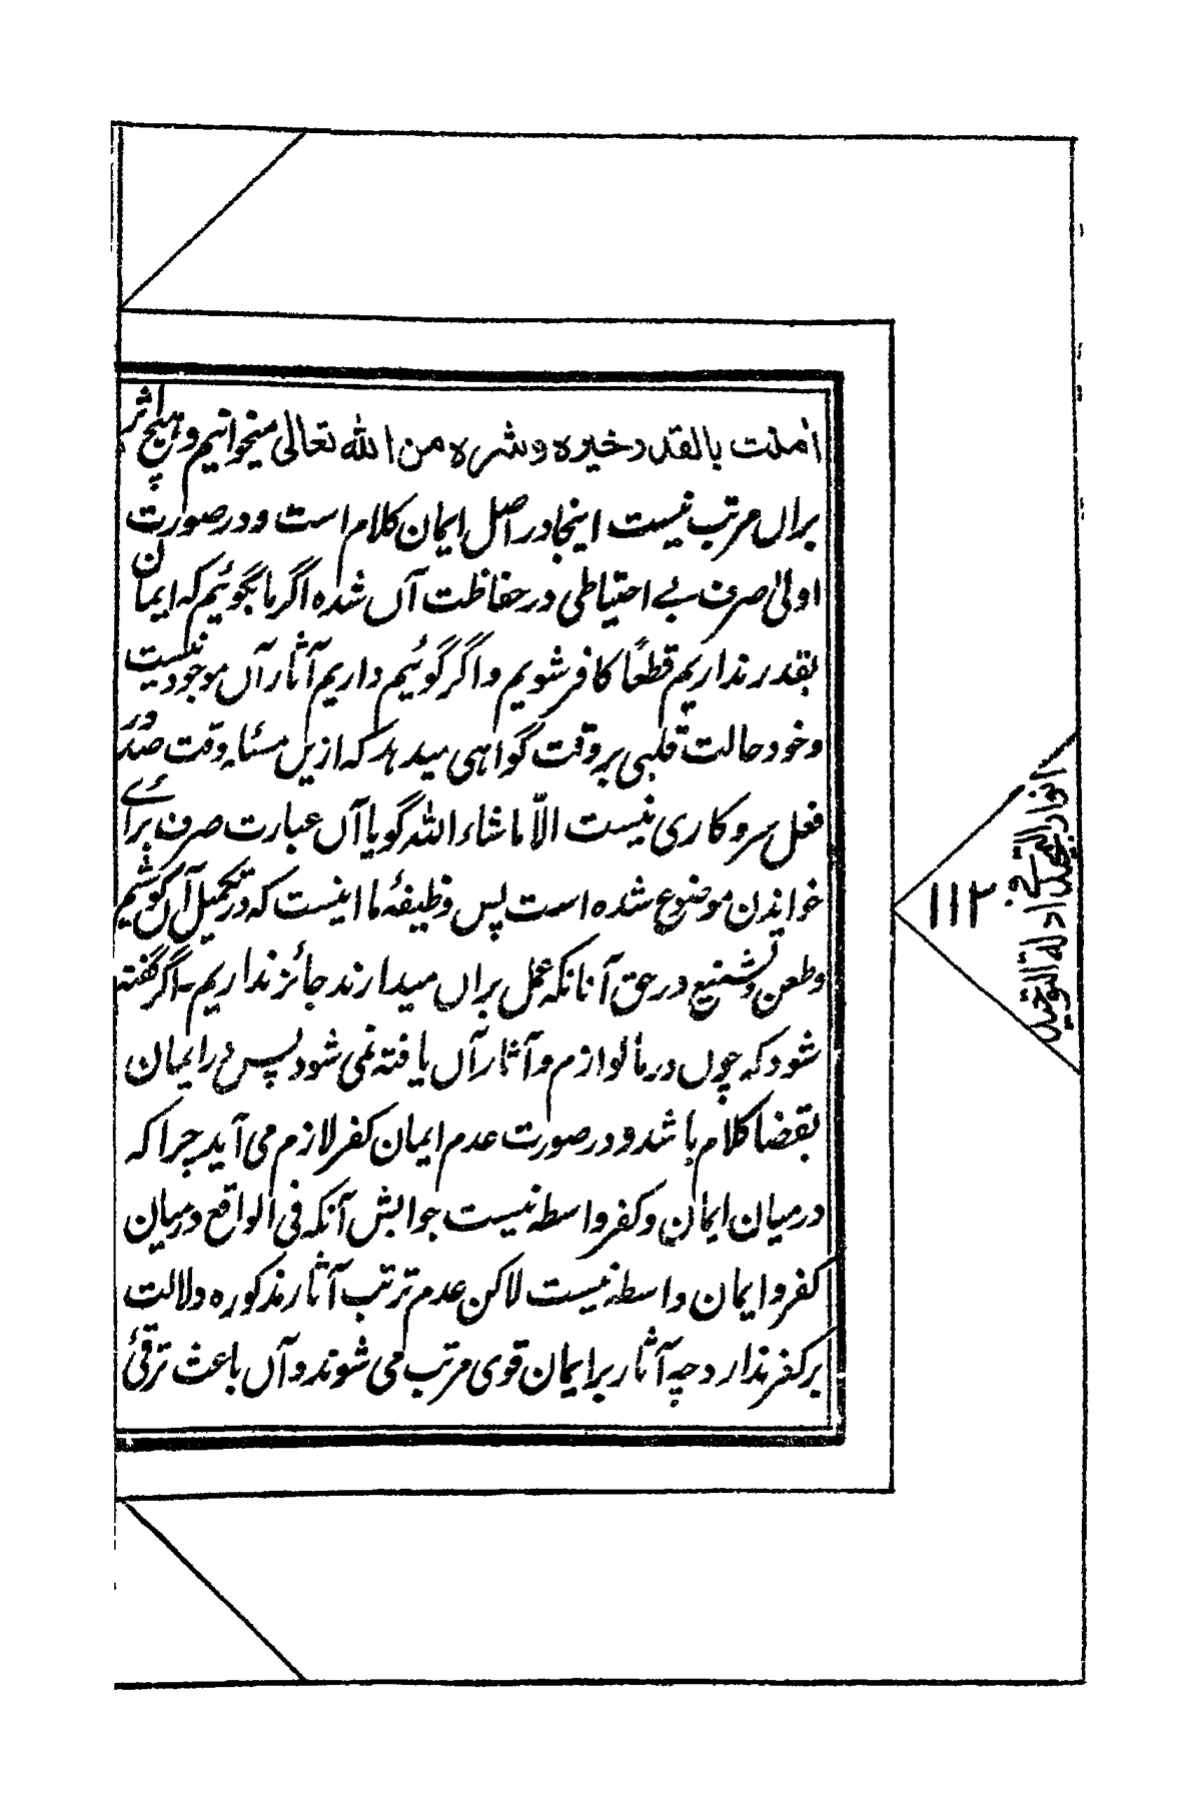 اٰمنت بالقدر خیره وشره من الله تعالی میخوانیم و هیچ اثر
براں مرتب نیست اینجا در اصل ایمان کلام است و در صورت
اولیٰ صرف بے احتیاطی در حفاظت آں شده اگر ما بگوئیم که ایمان
بقدر نداریم قطعًا کافر شویم و اگر گوئیم داریم آثار آں موجود نیست
و خود حالت قلبی بر وقت گواهی میدهد که ازیں مسئله وقت صدور
فعل سروکاری نیست الّا ماشاء الله گویا آں عبارت صرف براے
خواندن موضوع شده است پس وظیفهٔ ما اینست که در تکمیل آں کوشیم
و طعن و تشنیع در حق آنانکه عمل براں میدارند جائز نداریم۔ اگر گفته
شود که چوں در ما لوازم و آثار آں یافته نمی شود پس در ایمان
بقضا کلام باشد و در صورت عدم ایمان کفر لازم می آید چرا که
درمیان ایمان و کفر واسطه نیست جوابش آنکه فی الواقع درمیان
کفر و ایمان واسطه نیست لاکن عدم ترتب آثار مذکوره دلالت
بر کفر ندارد چه آثار بر ایمان قوی مرتب می شوند و آں باعث ترقئ
۱۱۲
انوار التمجید فی ادلة التوحید